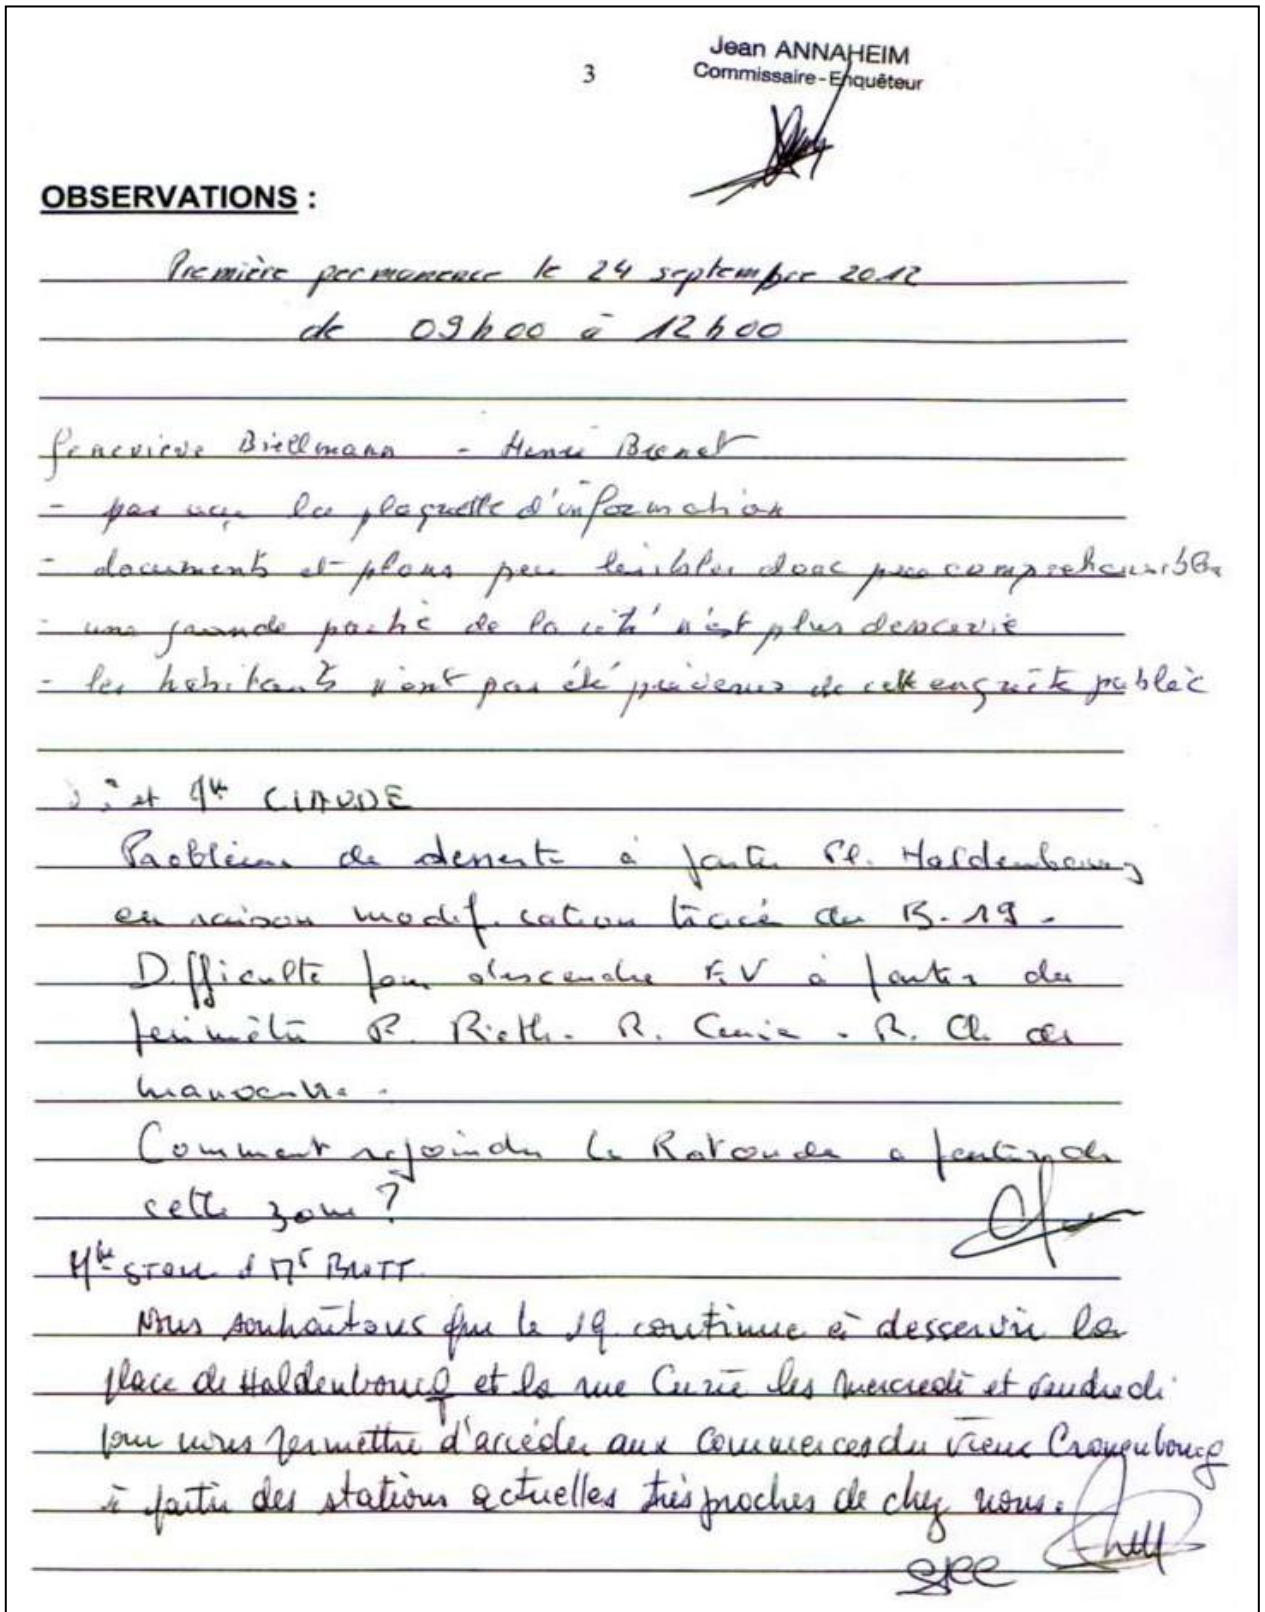 3
Jean ANNAHEIM
Commissaire-Enquêteur
OBSERVATIONS :
Première permanence le 24 septembre 2012
de 09h00 à 12h00
Geneviève Biellmann - Henri
- pas reçu la plaquette d'information
- documents et plans peu lisibles donc peu compréhensibles
- une grande partie de la cité n'est plus desservie
- les habitants n'ont pas été prévenus de cette enquête public
et Me CLAUDE
Problème de desserte à partir Pl. Haldenbourg
en raison modification tracé du B.19.
Difficulté pour descendre E.V à partir du
périmètre R. Rieth. R. Curie. R. Ch de
manoeuvre.
Comment rejoindre la Rotonde a partir de
cette zone ?
Me STOLL et Mr
Nous souhaitons que le 19 continue à desservir la
place de Haldenbourg et la rue Curie les mercredi et vendredi
pour nous permettre d'accéder aux commerces du vieux Cronenbourg
à partir des stations actuelles très proches de chez nous.